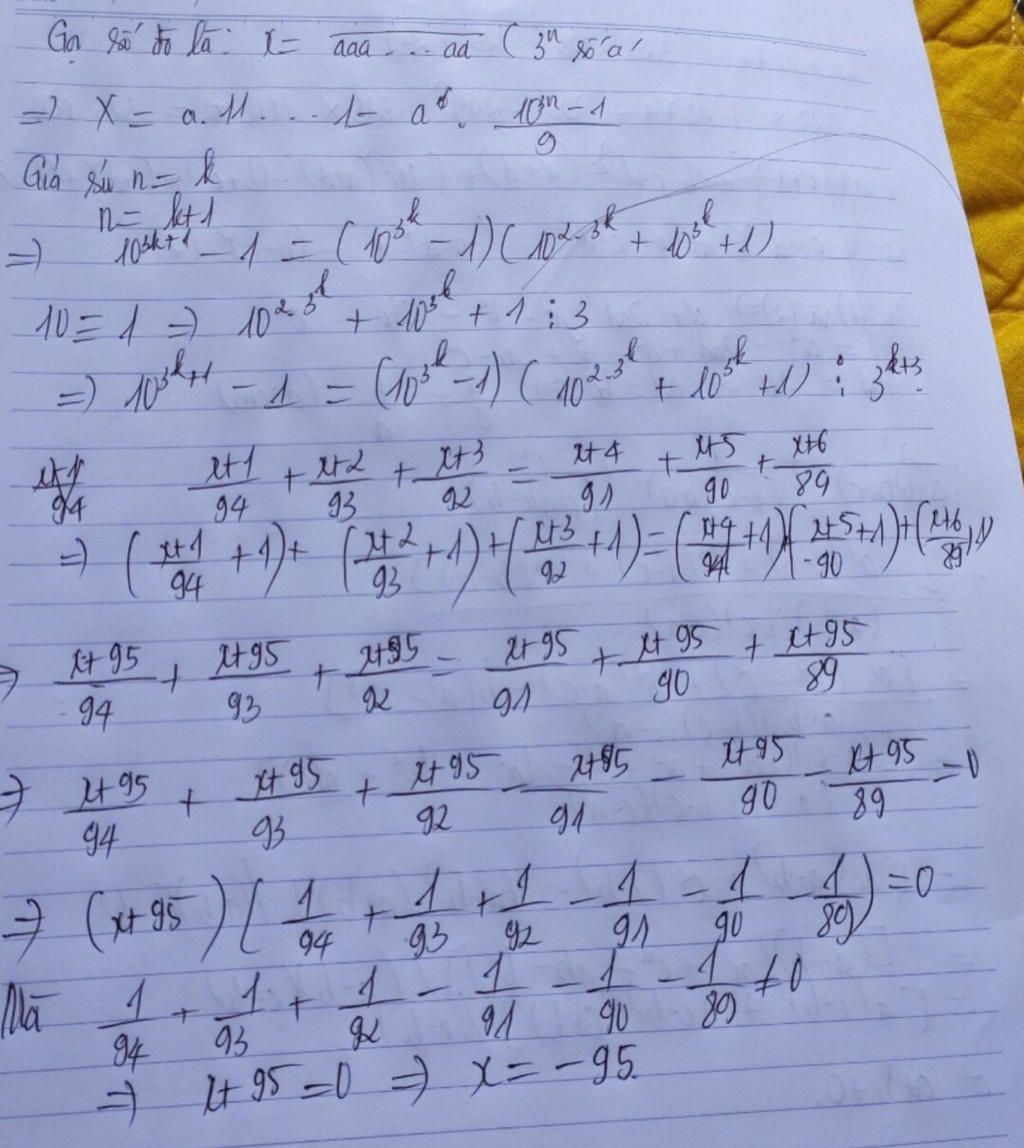 Gọi số đó là: x = \overline{aaa...aa} (3^n số a)
=> X = a.11...1 = a . \frac{10^{3^n} - 1}{9}
Giả sử n = k
n = k+1
=> 10^{3^{k+1}} - 1 = (10^{3^k} - 1)(10^{2.3^k} + 10^{3^k} + 1)
10 ≡ 1 => 10^{2.3^k} + 10^{3^k} + 1 ⋮ 3
=> 10^{3^{k+1}} - 1 = (10^{3^k} - 1)(10^{2.3^k} + 10^{3^k} + 1) ⋮ 3^{k+3}.
\frac{x+1}{94} + \frac{x+2}{93} + \frac{x+3}{92} = \frac{x+4}{91} + \frac{x+5}{90} + \frac{x+6}{89}
=> (\frac{x+1}{94} + 1) + (\frac{x+2}{93} + 1) + (\frac{x+3}{92} + 1) = (\frac{x+4}{91} + 1) + (\frac{x+5}{90} + 1) + (\frac{x+6}{89} + 1)
=> \frac{x+95}{94} + \frac{x+95}{93} + \frac{x+95}{92} = \frac{x+95}{91} + \frac{x+95}{90} + \frac{x+95}{89}
=> \frac{x+95}{94} + \frac{x+95}{93} + \frac{x+95}{92} - \frac{x+95}{91} - \frac{x+95}{90} - \frac{x+95}{89} = 0
=> (x+95) ( \frac{1}{94} + \frac{1}{93} + \frac{1}{92} - \frac{1}{91} - \frac{1}{90} - \frac{1}{89} ) = 0
Mà \frac{1}{94} + \frac{1}{93} + \frac{1}{92} - \frac{1}{91} - \frac{1}{90} - \frac{1}{89} ≠ 0
=> x + 95 = 0 => x = -95.